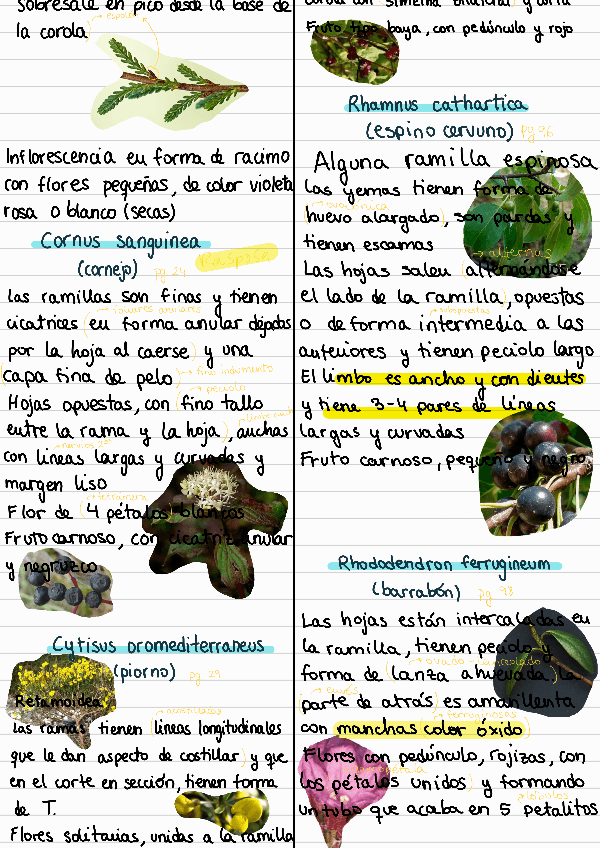 sobresale en pico desde la base de
→ espolón
la corola
Inflorescencia en forma de racimo
con flores pequeñas, de color violeta
rosa o blanco (secas)
Cornus sanguinea
(cornejo) pg 24
Rasposa
Las ramillas son finas y tienen
cicatrices (en forma anular dejadas
por la hoja al caerse) y una
capa fina de pelo → fino indumento
→ peciolo
Hojas opuestas, con (fino tallo
entre la rama y la hoja), anchas
con líneas largas y curvadas y
margen liso
→ tetrámera
Flor de (4 pétalos blancos
Fruto carnoso, con cicatriz anular
y negruzco
Cytisus oromediterraneus
(piorno) pg 29
Retamoidea
→ costillosas
Las ramas tienen (líneas longitudinales
que le dan aspecto de costillar) y que
en el corte en sección, tienen forma
de T.
Flores solitarias, unidas a la ramilla
Fruto tipo baya, con pedúnculo y rojo
Rhamnus cathartica
(espino cervuno) pg 96
Alguna ramilla espinosa
Las yemas tienen forma de
huevo alargado), son pardas y
tienen escamas
→ alternas
Las hojas salen (alternandose
el lado de la ramilla), opuestas
o de forma intermedia a las
anteriores y tienen peciolo largo
El limbo es ancho y con dientes
y tiene 3-4 pares de líneas
largas y curvadas
Fruto carnoso, pequeño y negro
Rhododendron ferrugineum
(barrabón) pg 93
Las hojas están intercaladas en
la ramilla, tienen peciolo y
forma de (lanza ahuevada), la
→ envés
parte de atrás) es amarillenta
→ ferruginosas
con manchas color óxido
Flores con pedúnculo, rojizas, con
los pétalos unidos) y formando
un tubo que acaba en 5 petalitos